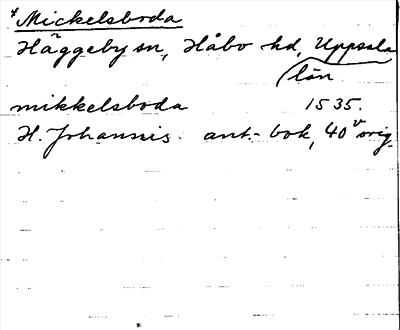 * Mickelsboda
Häggeby sn, Håbo hd, Uppsala
län
mikkelsboda 1535.
H. Johannis ant.-bok, 40 v orig.